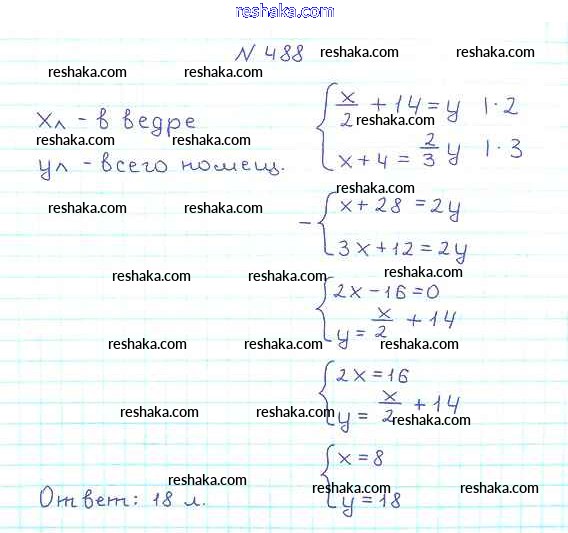 reshaka.com
N 488 reshaka.com reshaka.com
reshaka.com reshaka.com
xл - в ведре
x/2 + 14 = y | · 2
reshaka.com
reshaka.com reshaka.com
yл - всего помещ.
x + 4 = 2/3 y | · 3
reshaka.com
reshaka.com reshaka.com
- x + 28 = 2y
3x + 12 = 2y
reshaka.com reshaka.com reshaka.com
2x - 16 = 0
y = x/2 + 14
reshaka.com reshaka.com reshaka.com
2x = 16
y = x/2 + 14
reshaka.com reshaka.com reshaka.com
x = 8
reshaka.com reshaka.com reshaka.com
Ответ: 18 л.
y = 18